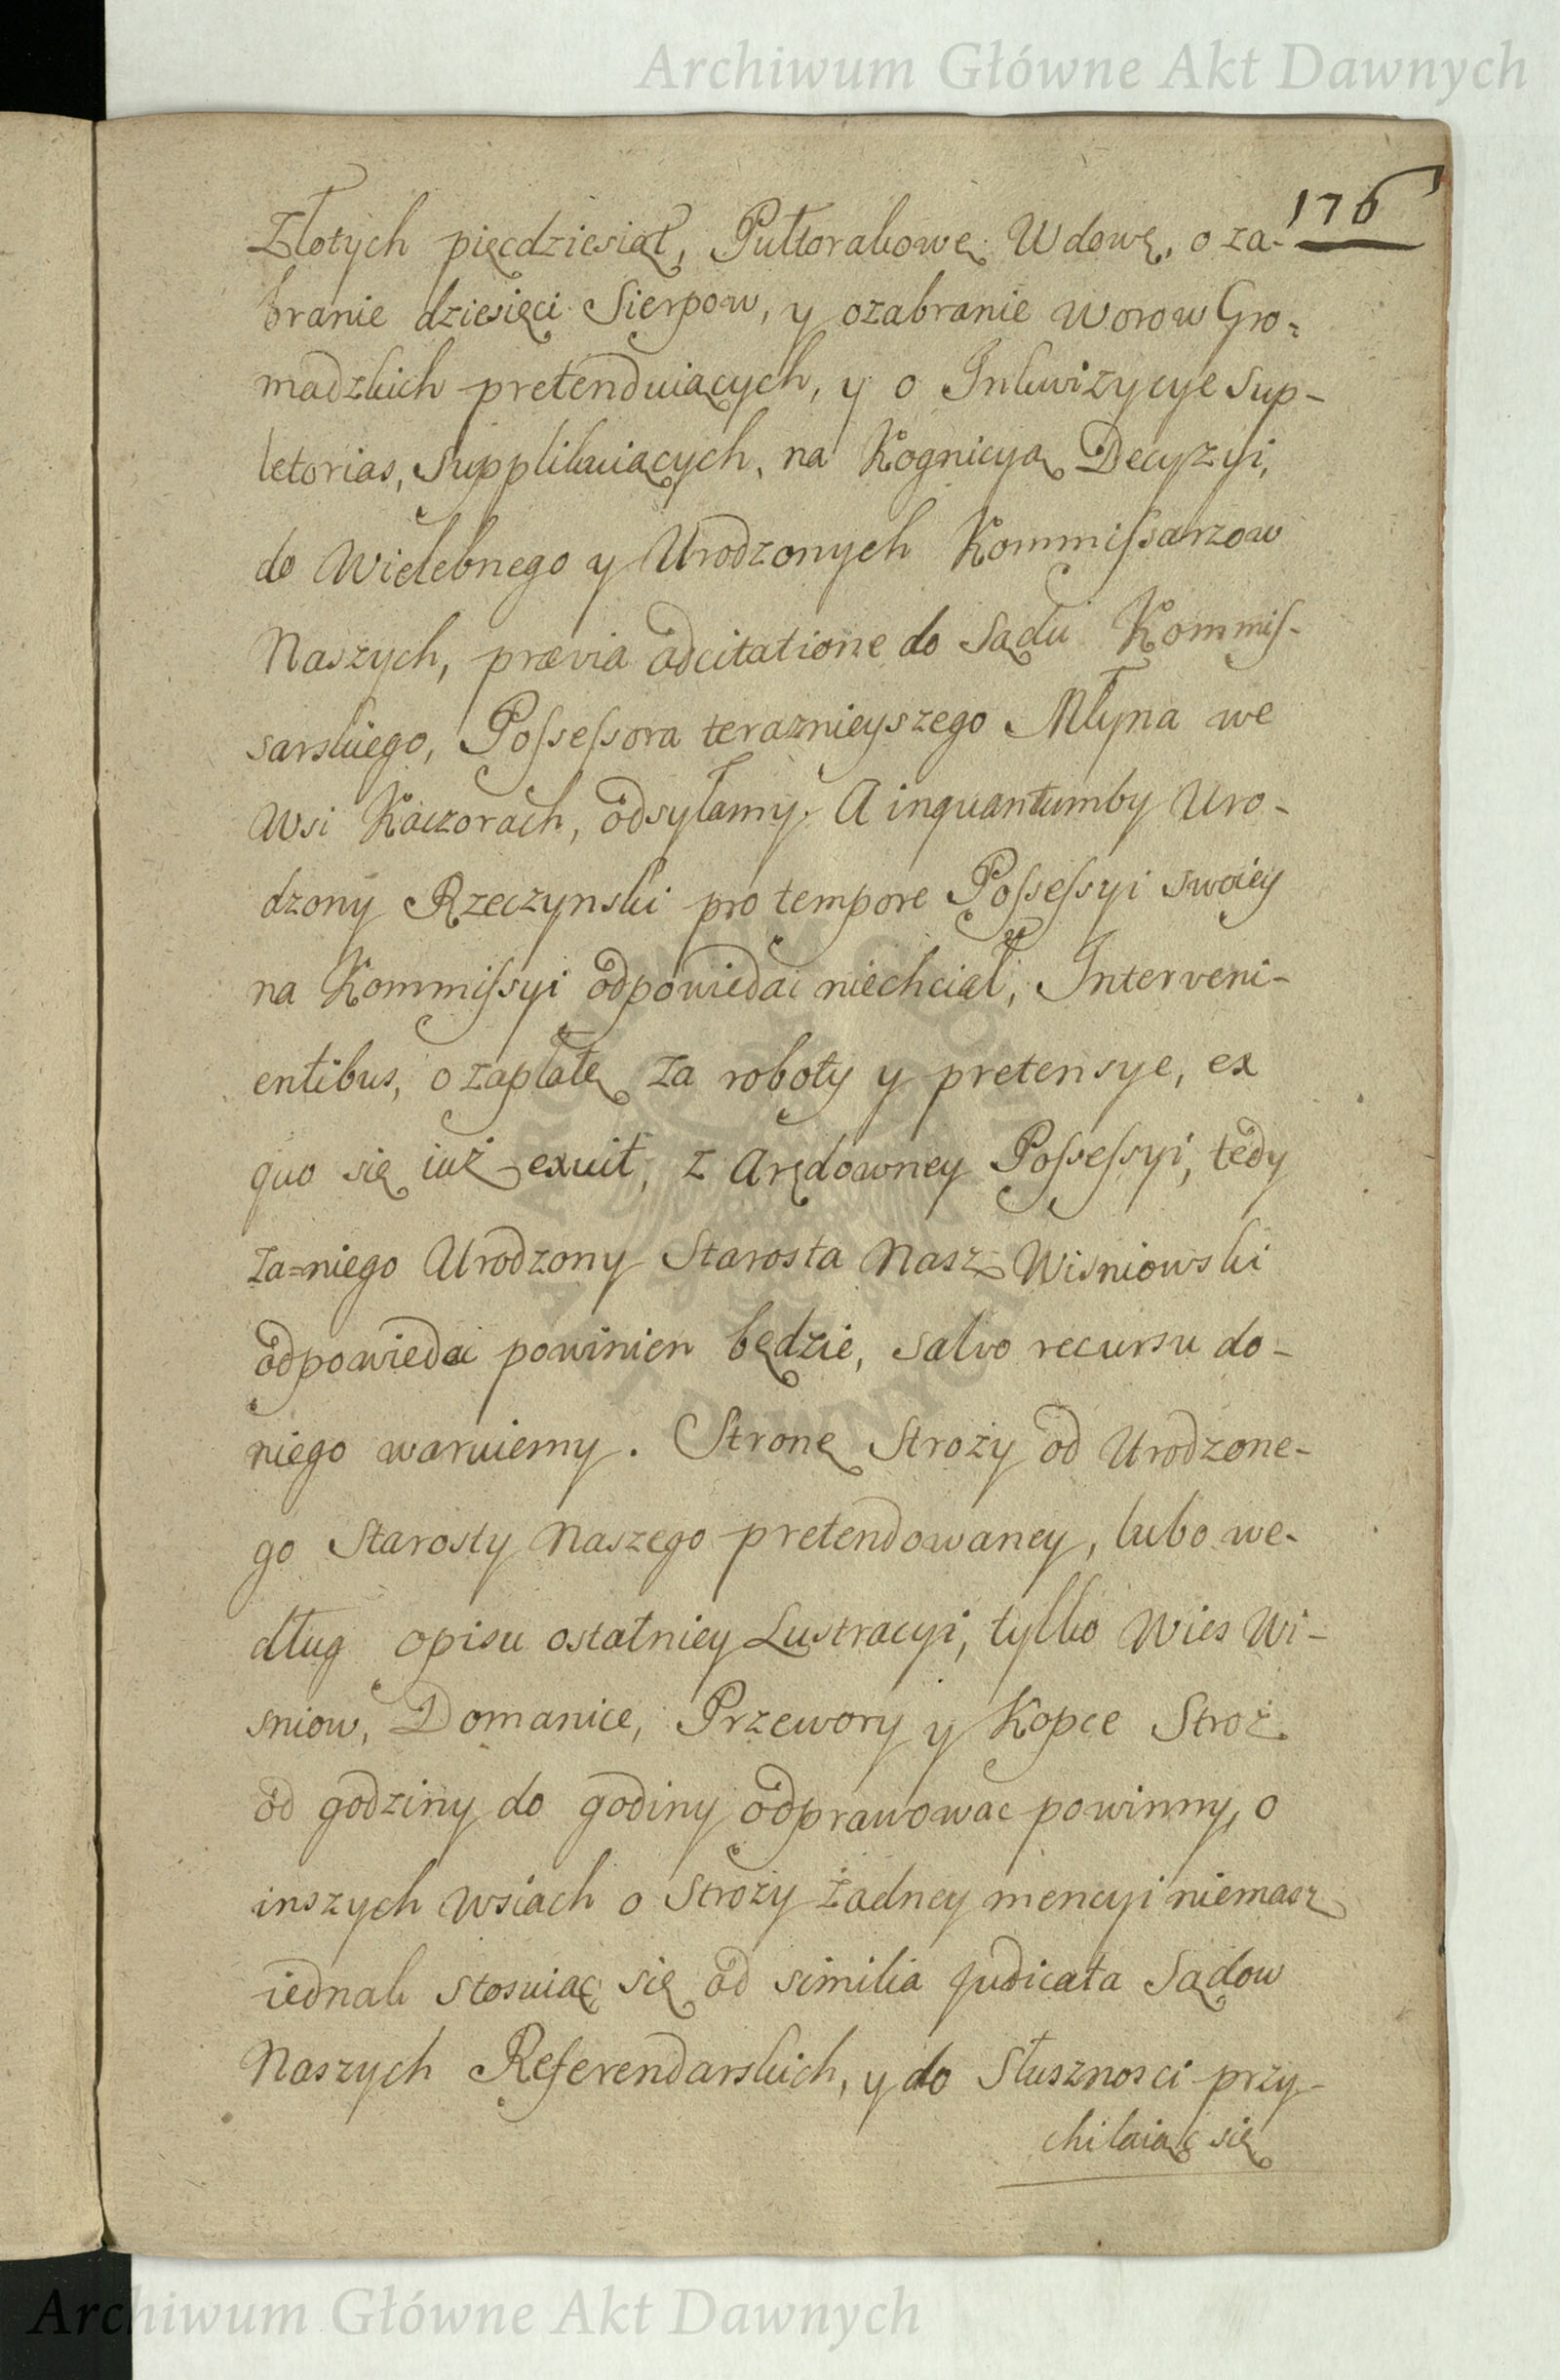 Archiwum Główne Akt Dawnych
176
Złotych pięcdziesiąt, Pułtorakowę Wdowę, o za-
branie dziesięci Sierpow, y ozabranie worow Gro=
madzkich pretenduiących, y o Inkwizycye sup-
letorias, supplikuiących, na Kognicyą Decyzyi,
do Wielebnego y Urodzonych Kommissarzow
Naszych, prævia adcitatione do Sądu Kommis-
sarskiego, Possessora teraznieyszego Młyna we
Wsi Kaczorach, odsyłamy. A inquantumby Uro-
dzony Rzeczynski pro tempore Possessyi swoiey
na Kommissyi odpowiedac niechciał, Interveni-
entibus, o zapłatę za roboty y pretensye, ex
quo się iuż exuit, z Arędowney Possessyi, tedy
za=niego Urodzony Starosta Nasz Wisniowski
odpowiedac powinien będzie, salvo recursu do-
niego waruiemy. Stronę Strozy od Urodzone-
go Starosty Naszego pretendowaney, lubo we-
dług opisu ostatniey Lustracyi, tylko Wies Wi-
sniow, Domanice, Przewory y Kopce Stroż
od godziny do godiny odprawowac powinny, o
inszych Wsiach o Strozy żadney mencyi niemasz
iednak stosuiąc się ad similia judicata Sądow
Naszych Referendarskich, y do Słusznosci przy-
chilaiąc się
ARCHIWUM GŁÓWNE AKT DAWNYCH
Archiwum Główne Akt Dawnych